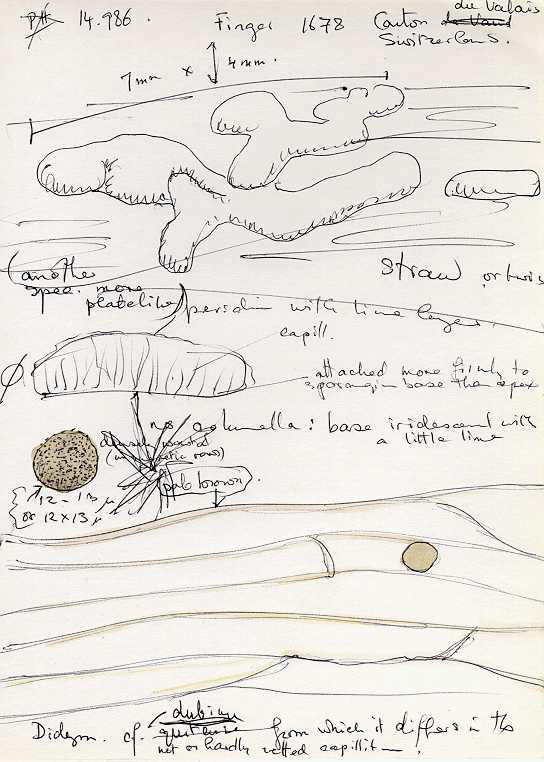 14.986. Finger 1678 Canton de Vaud du Valais
Switzerland.
7 mm x 4 mm.
(another
spec. more
platelike
straw or twig
peridium with lime layer.
capill.
attached more firmly to
sporangium base than apex
no columella: base iridescent with
a little lime
densely warted
pale brown.
12-13 µ
or 12x13 µ
dubium
Didym. cf. from which it differs in the
not or hardly netted capillit.